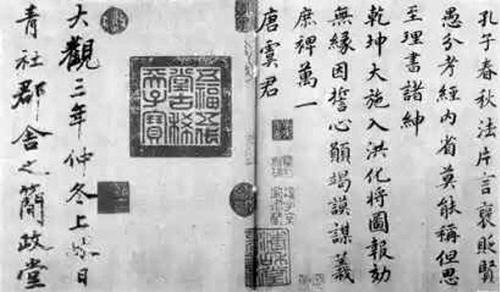 孔子春秋法片言褒貶賢
愚分考經內省莫能稱但思
至理書諸紳
乾坤大施入洪化將圖報効
無緣因誓心願竭謨謀義
庶裨萬一
唐虞君
五福五代
堂古稀
天子寶
大觀三年仲冬上日
青社郡舍之簡政堂